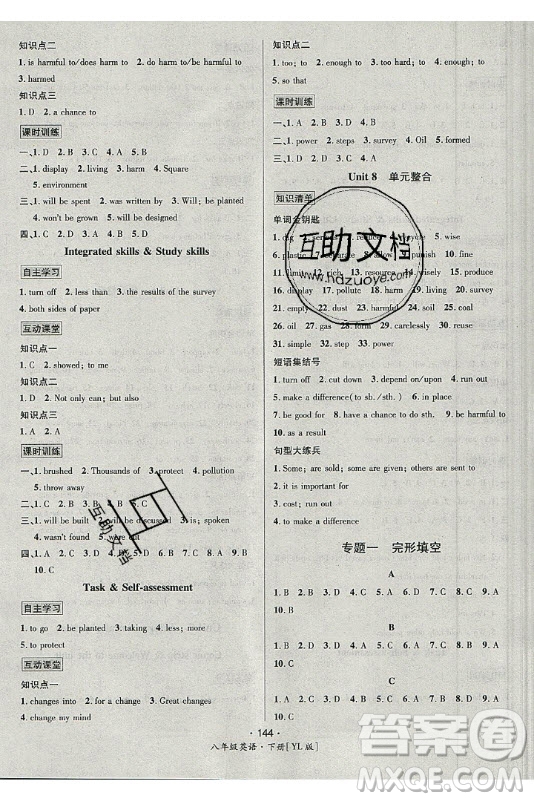 知识点二
1. is harmful to/does harm to  2. do/be harmful to
3. harmed
知识点三
1. D  2. a chance to
课时训练
一、1. D  2. C  3. A  4. B  5. D
二、1. display  2. living  3. harm  4. Square
5. environment
三、1. will be sent  2. was written by  3. Will; be planted
4. won't be grown  5. are divided
四、1. D  2. C  3. A  4. B  5. A  6. D  7. B  8. C
Integrated skills & Study skills
自主学习
1. turn off  2. less than  3. the results of the survey
4. both sides of paper
互动课堂
知识点一
1. C  2. showed; to me
知识点二
1. D  2. Not only can; but also
知识点三
1. A  2. A
课时训练
一、1. brushed  2. Thousands of  3. protect  4. pollution
5. throw away
二、1. C  2. C  3. D  4. A  5. C
三、1. will be built  2. will be discussed  3. is; spoken
4. wasn't found  5. were cut
四、1. A  2. B  3. D  4. B  5. A  6. C  7. D  8. C  9. B
10. C
Task & Self-assessment
自主学习
1. to go  2. be planted  3. taking  4. less; more
5. to protect
互动课堂
知识点一
1. changes into  2. for a change  3. Great changes
4. change my mind
知识点二
1. too; to  2. enough to  3. too hard; to  4. enough to
5. so that
课时训练
1. power  2. steps  3. survey  4. Oil  5. formed
2. B  3. C  4. D  5. C
Unit 8 单元整合
知识清单
单词金钥匙
1. dig
5. wise
6. plastic
10. fine
11. limit
15. wisely
16. display  17. pollute  18. harm  20. empty
21. empty  22. dust  23. harmful  24. power  25. coal
26. oil  27. gas  28. form  29. carelessly  30. reuse
31. simple  32. step  33. survey
短语集结号
1. turn off  2. cut down  3. depend on/upon  4. run out
5. make a difference(to sb./sth.)  6. throw away
7. be good for  8. have a chance to do sth.  9. be harmful to
10. as a result
句型大练兵
1. Some; are sold; some; are given
2. it is important for
3. cost; run out
4. to make a difference to
专题一 完形填空
A
1. B  2. D  3. C  4. A  5. D  6. B  7. C  8. C  9. A
10. B
B
1. D  2. B  3. C  4. A  5. A  6. C  7. D  8. B  9. A
10. C
C
1. B  2. A  3. D  4. C  5. A  6. C  7. B  8. D  9. A
10. C
·144·
八年级英语·下册[YL版]
互助文档
www.hdzuoye.com
互助文档
答案圈
MXQE.COM